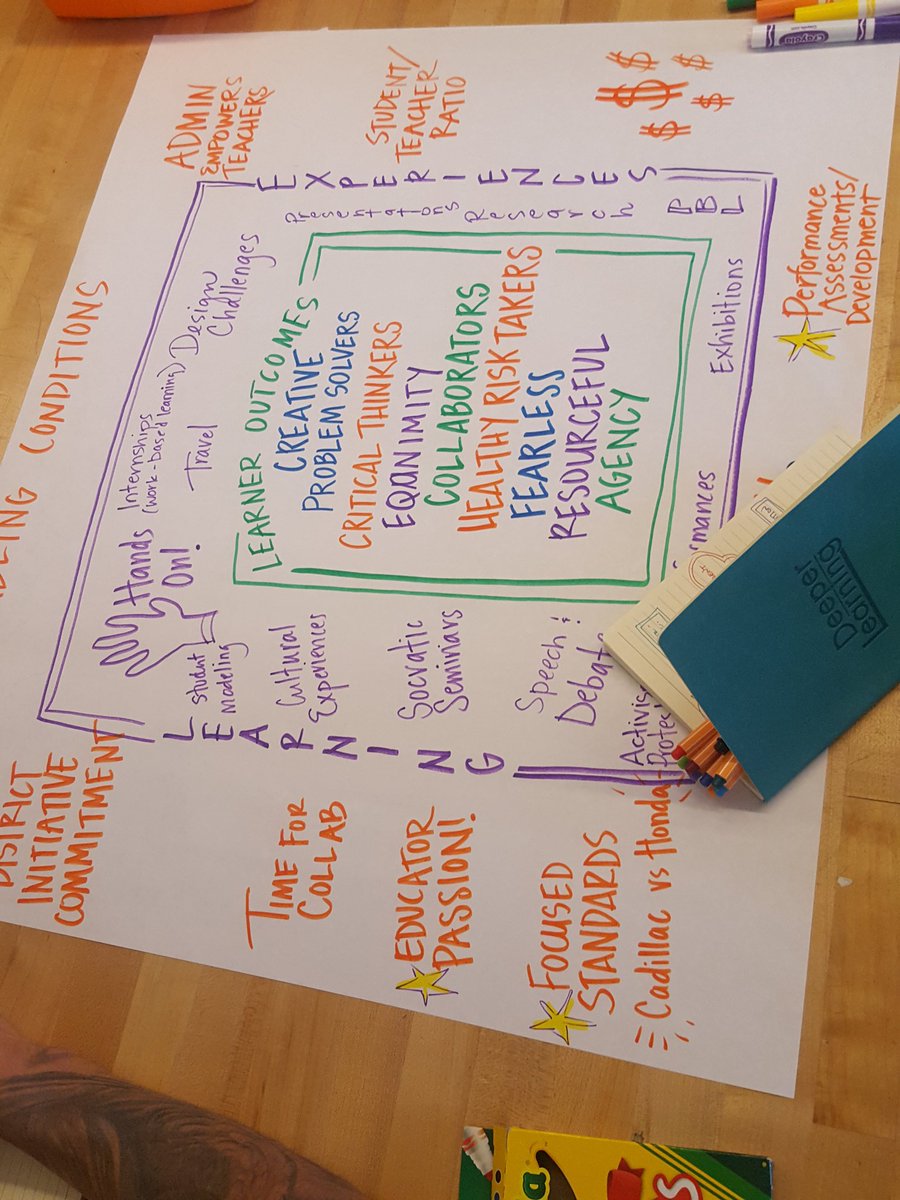 CONDITIONS
ADMIN
EMPOWERS
TEACHERS
STUDENT/
TEACHER
RATIO
$ $ $ $ $
Performance
Assessments/
Development
DISTRICT
INITIATIVE
COMMITMENT
TIME FOR
COLLAB
EDUCATOR
PASSION!
FOCUSED
STANDARDS
Cadillac vs Honda
LEARNING
EXPERIENCES
Hands
On!
Internships
(work-based learning)
Travel
Design
Challenges
Presentations
Research
PBL
Exhibitions
student
modeling
Cultural
Experiences
Socratic
Seminars
Speech &
Debate
LEARNER OUTCOMES
CREATIVE
PROBLEM SOLVERS
CRITICAL THINKERS
EQANIMITY
COLLABORATORS
HEALTHY RISK TAKERS
FEARLESS
RESOURCEFUL
AGENCY
Deeper
learning
Crayola